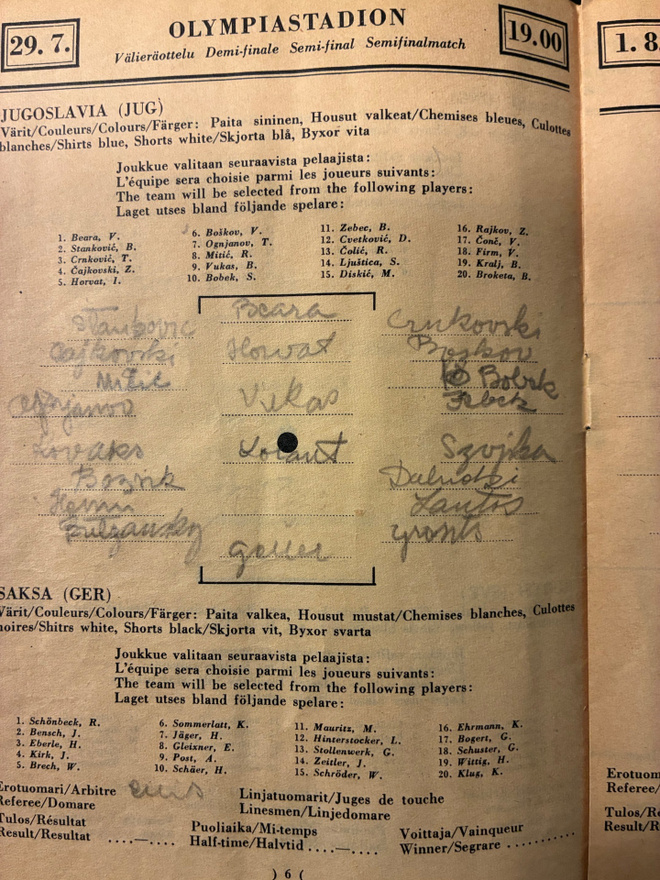 29. 7.
OLYMPIASTADION
19.00
Välieräottelu Demi-finale Semi-final Semifinalmatch
1. 8.
JUGOSLAVIA (JUG)
Värit/Couleurs/Colours/Färger: Paita sininen, Housut valkeat/Chemises bleues, Culottes
blanches/Shirts blue, Shorts white/Skjorta blå, Byxor vita
Joukkue valitaan seuraavista pelaajista:
L'équipe sera choisie parmi les joueurs suivants:
The team will be selected from the following players:
Laget utses bland följande spelare:
1. Beara, V.
2. Stanković, B.
3. Crnković, T.
4. Čajkovski, Z.
5. Horvat, I.
6. Boškov, V.
7. Ognjanov, T.
8. Mitić, R.
9. Vukas, B.
10. Bobek, S.
11. Zebec, B.
12. Cvetković, D.
13. Čolić, R.
14. Ljuštica, S.
15. Diskić, M.
16. Rajkov, Z.
17. Čonč, V.
18. Firm, V.
19. Kralj, B.
20. Broketa, B.
Beara
Stankovic Crnkovski
Cajkovski Horvat Boskov
Mitic Bobek
Ognjanov Vukas
Lovaks Lorant Szojka
Bozsik
Lantos
SAKSA (GER)
Värit/Couleurs/Colours/Färger: Paita valkea, Housut mustat/Chemises blanches, Culottes
noires/Shitrs white, Shorts black/Skjorta vit, Byxor svarta
Joukkue valitaan seuraavista pelaajista:
L'équipe sera choisie parmi les joueurs suivants:
The team will be selected from the following players:
Laget utses bland följande spelare:
1. Schönbeck, R.
2. Bensch, J.
3. Eberle, H.
4. Kirk, J.
5. Brech, W.
6. Sommerlatt, K.
7. Jäger, H.
8. Gleixner, E.
9. Post, A.
10. Schäer, H.
11. Mauritz, M.
12. Hinterstocker, L.
13. Stollenwerk, G.
14. Zeitler, J.
15. Schröder, W.
16. Ehrmann, K.
17. Bogert, G.
18. Schuster, G.
19. Wittig, H.
20. Klug, K.
Erotuomari/Arbitre
Referee/Domare
Linjatuomarit/Juges de touche
Linesmen/Linjedomare
Tulos/Résultat
Result/Resultat ....—....
Puoliaika/Mi-temps
Half-time/Halvtid ....—....
Voittaja/Vainqueur
Winner/Segrare ..........
) 6 (